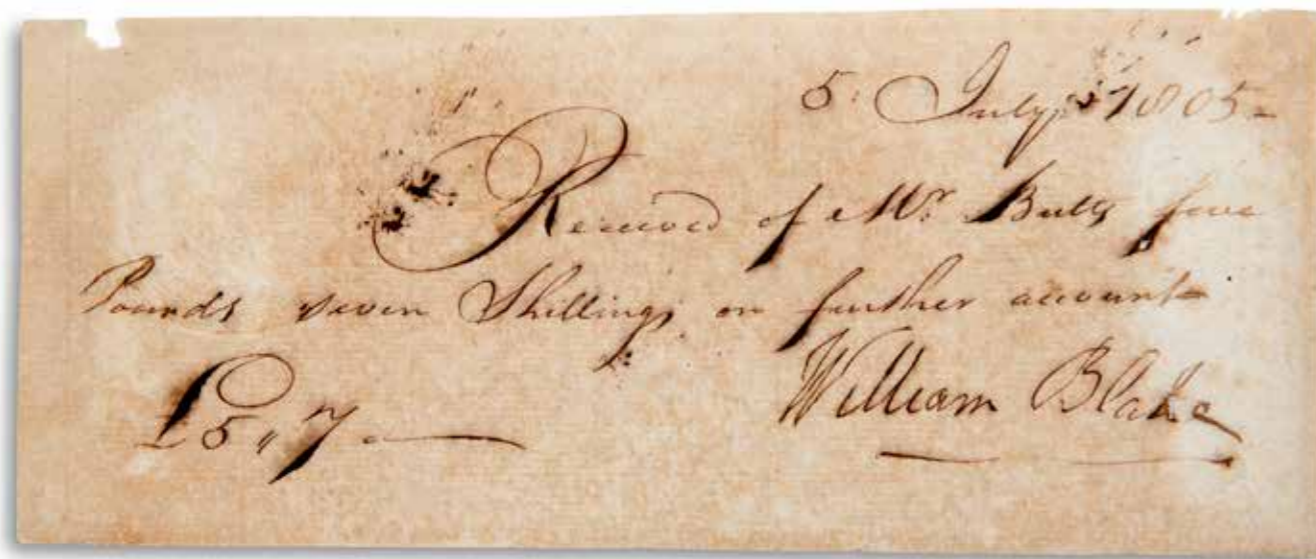 5. July 1805 -
Received of Mr. Butts five
Pounds seven Shillings on further account -
£5,, 7 -
William Blake